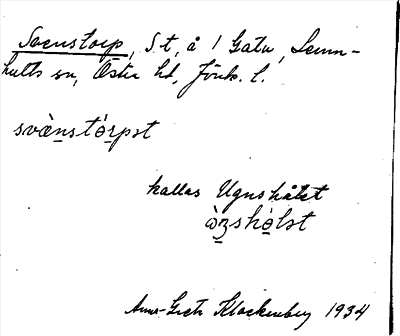 Svenstorp, S. t, å 1 Gata, Lemn-
hults sn, Östra hd, Jönk. l.
svὰn̲stȯ́r̲pst
kallas Ugnshålet
ὼn̲shȯ̀lst
Anna-Greta Klockenberg 1934